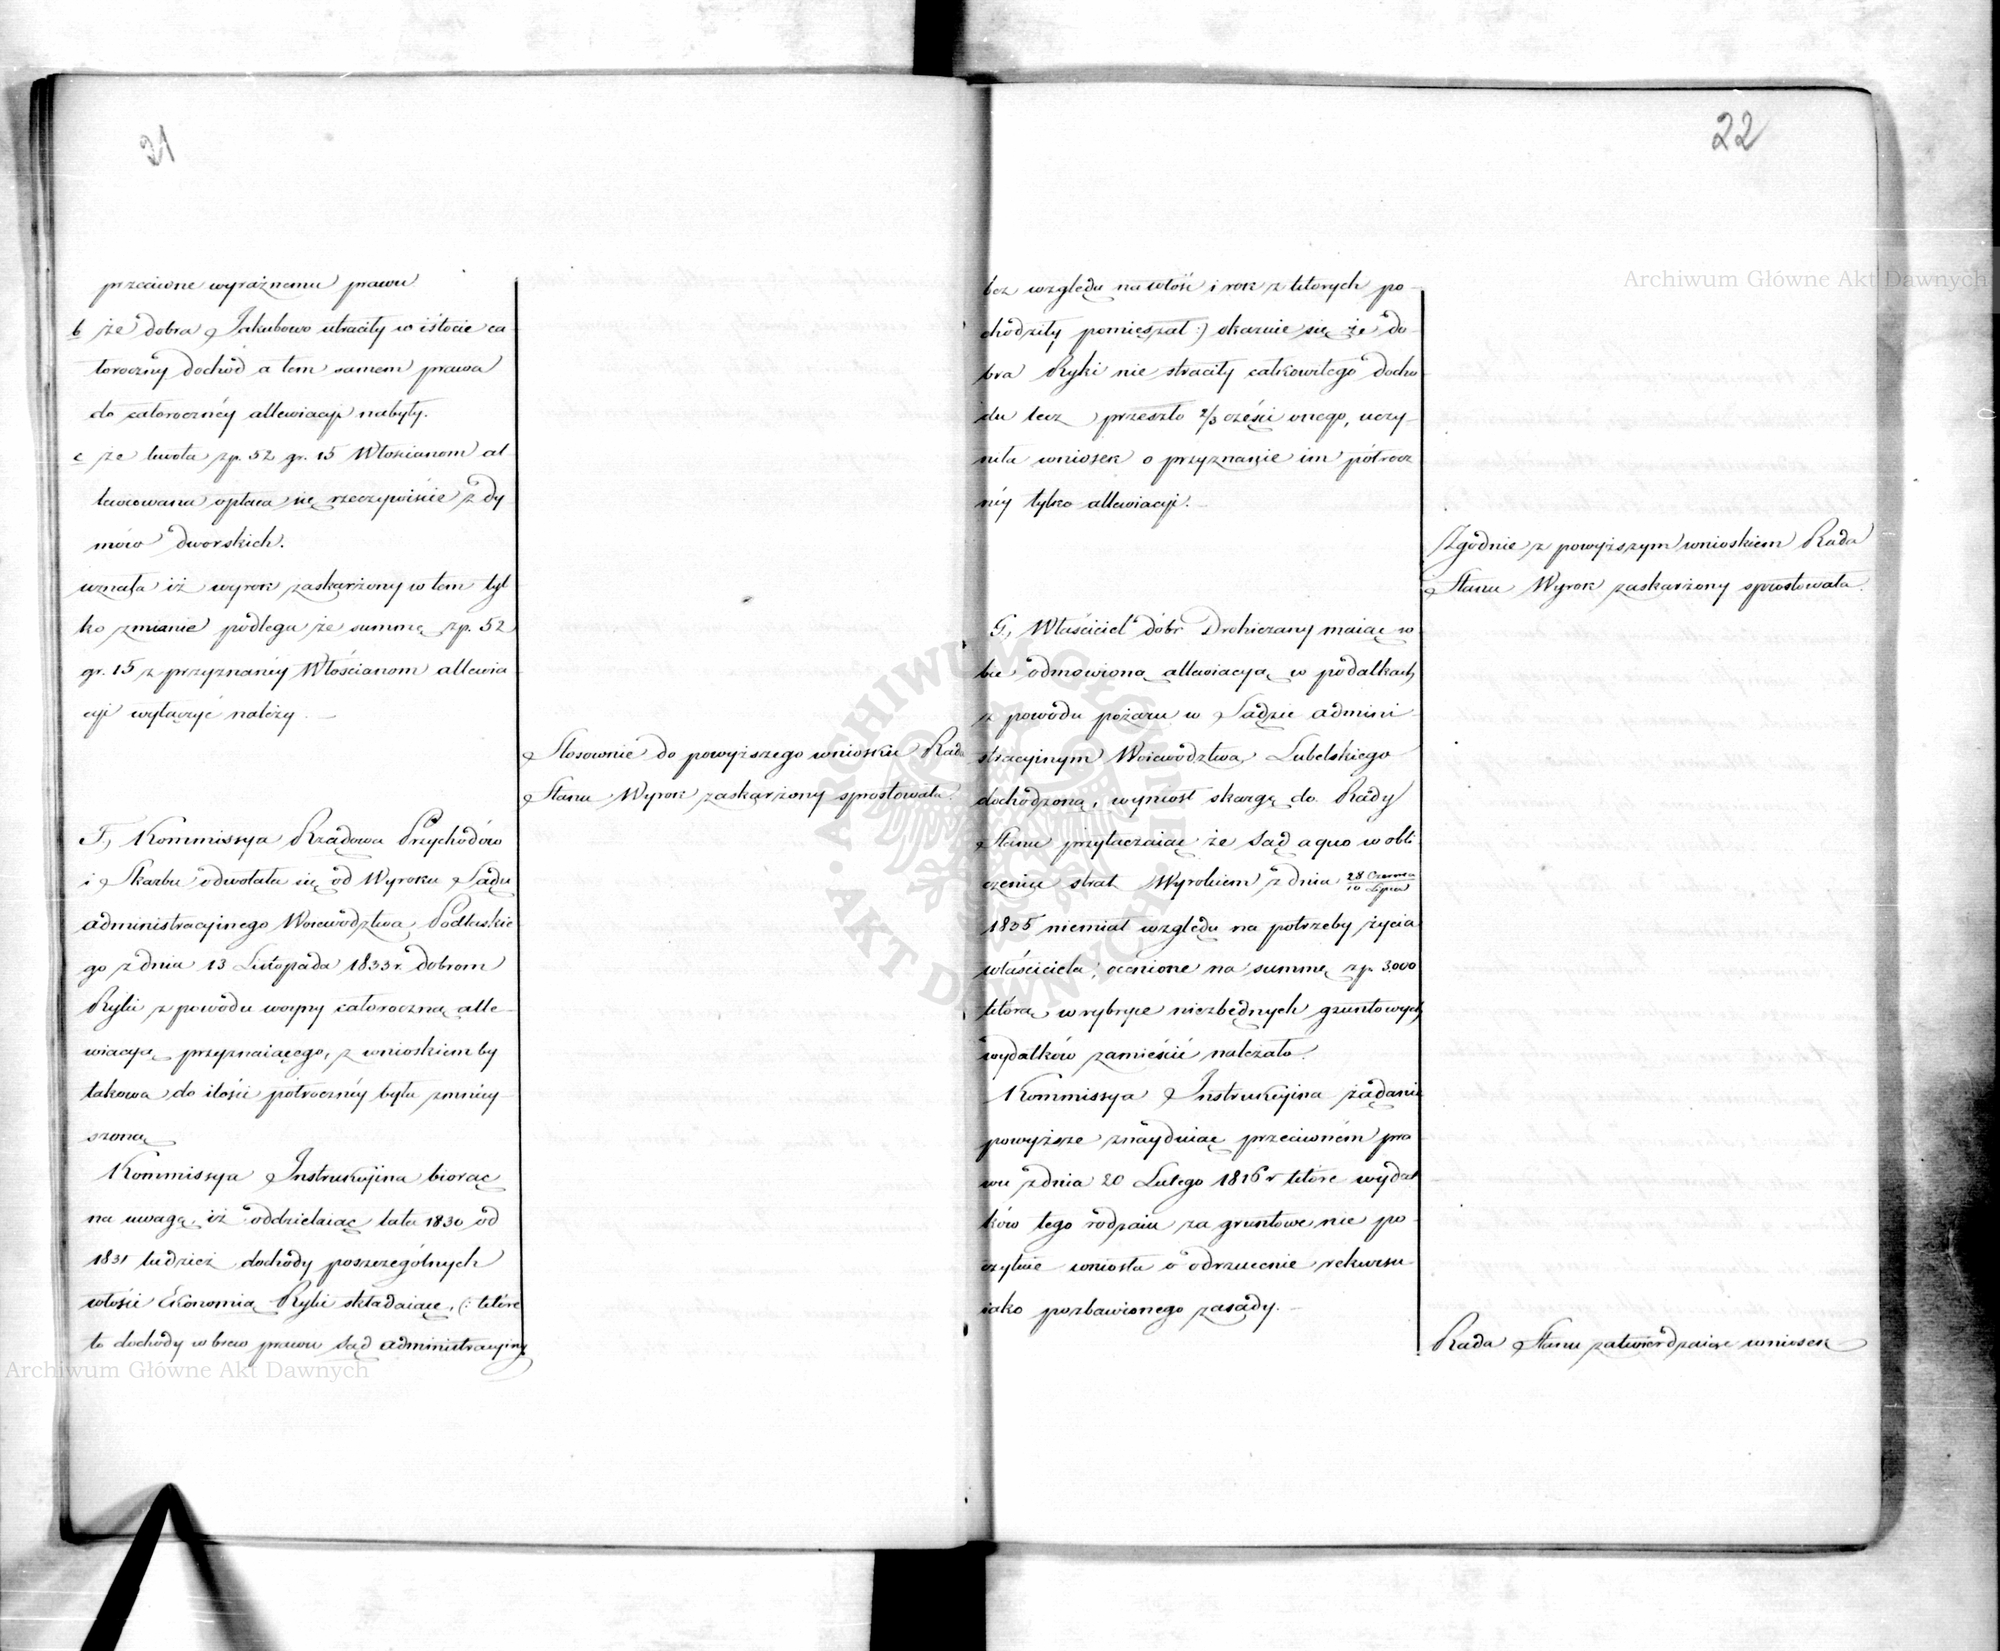 21
przeciwne wyraźnemu prawu
b że dobra Jakubowo utraciły w istocie ca-
łoroczny dochód a tem samem prawa
do całorocznéy allewiacyi nabyły.
c że kwota zp. 52 gr. 15 Włościanom al-
lewiowana opłaca się rzeczywiście z dy
mów dworskich.
uznała iż wyrok zaskarżony w tem tyl
ko zmianie podlega że summę zp. 52
gr. 15 z przyznanéy Włościanom allewia
cyi wyłączyć należy. —
Stosownie do powyższego wniosku Rada
Stanu Wyrok zaskarżony sprostowała.
F, Kommissya Rządowa Przychodów
i Skarbu odwołała się od Wyroku Sądu
administracyinego Woiewództwa Podlaskie
go z dnia 13 Listopada 1833 r. dobrom
Ryki z powodu woyny całoroczną alle-
wiacyą przyznaiącego, z wnioskiem by
takowa do ilości półrocznéy była zmniey-
szoną
Kommissya Instrukcyina biorąc
na uwagę, iż oddzielaiąc lata 1830 od
1831 tudzież dochody poszczególnych
włości Ekonomią Ryki składaiące, (: które
to dochody wbrew prawu Sąd administracyiny
22
bez względu na włość i rok z których po-
chodziły pomięszał :) okazuie się że do-
bra Ryki nie straciły całkowitego docho
du lecz przeszło 2/3 części onego, uczy-
niła wniosek o przyznanie im półrocz
néy tylko allewiacyi. —
Zgodnie z powyższym wnioskiem Rada
Stanu Wyrok zaskarżony sprostowała.
G, Właściciel dóbr Drohiczany maiąc so
bie odmówioną allewiacyą w podatkach
z powodu pożaru w Sądzie admini-
stracyinym Woiewództwa Lubelskiego
dochodzoną, wyniósł skargę do Rady
Stanu przytaczaiąc że Sąd a quo w obli
czeniu strat Wyrokiem z dnia 28 Czerwca / 10 Lipca
1835 niemiał względu na potrzeby życia
właściciela, ocenione na summę zp. 3,000
którą w rybryce niezbędnych gruntowych
wydatków zamieścić należało.
Kommissya Instrukcyina żądanie
powyższe znayduiąc przeciwném pra
wu z dnia 20 Lutego 1816 r które wydat
ków tego rodzaiu za gruntowe nie po-
czytuie wniosła o odrzucenie rekursu
iako pozbawionego zasady. —
Rada Stanu zatwierdzaiąc wniosek
Archiwum Główne Akt Dawnych
Archiwum Główne Akt Dawnych
ARCHIWUM GŁÓWNE · AKT DAWNYCH ·